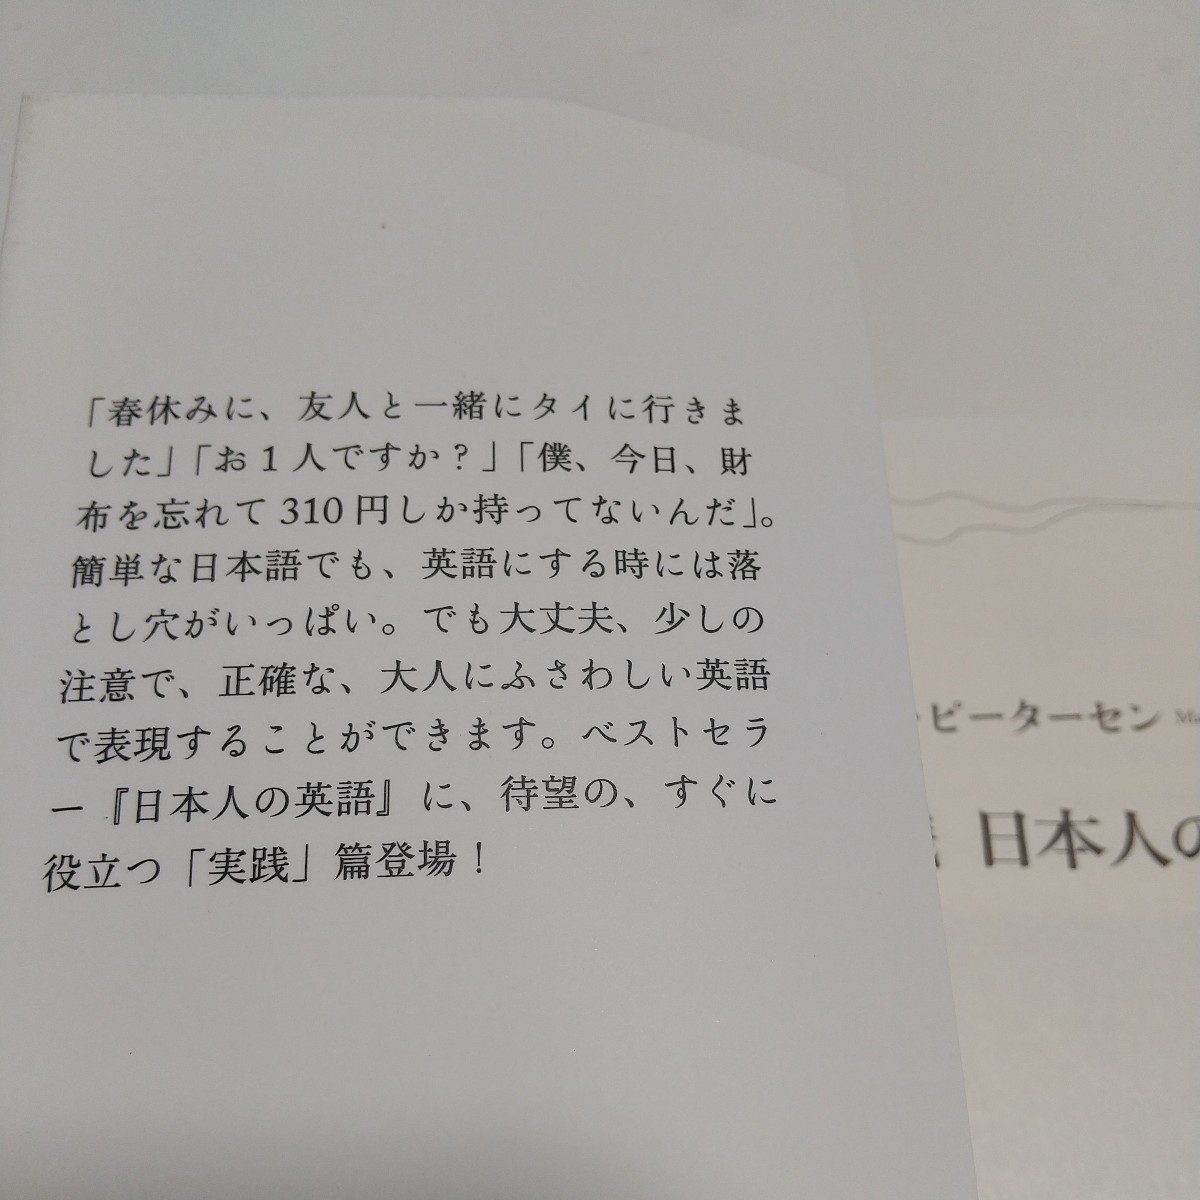 「春休みに、友人と一緒にタイに行きま
した」「お1人ですか?」「僕、今日、財
布を忘れて310円しか持ってないんだ」。
簡単な日本語でも、英語にする時には落
とし穴がいっぱい。でも大丈夫、少しの
注意で、正確な、大人にふさわしい英語
で表現することができます。ベストセラ
ー『日本人の英語』に、待望の、すぐに
役立つ「実践」篇登場!
・ピーターセン Ma
日本人の